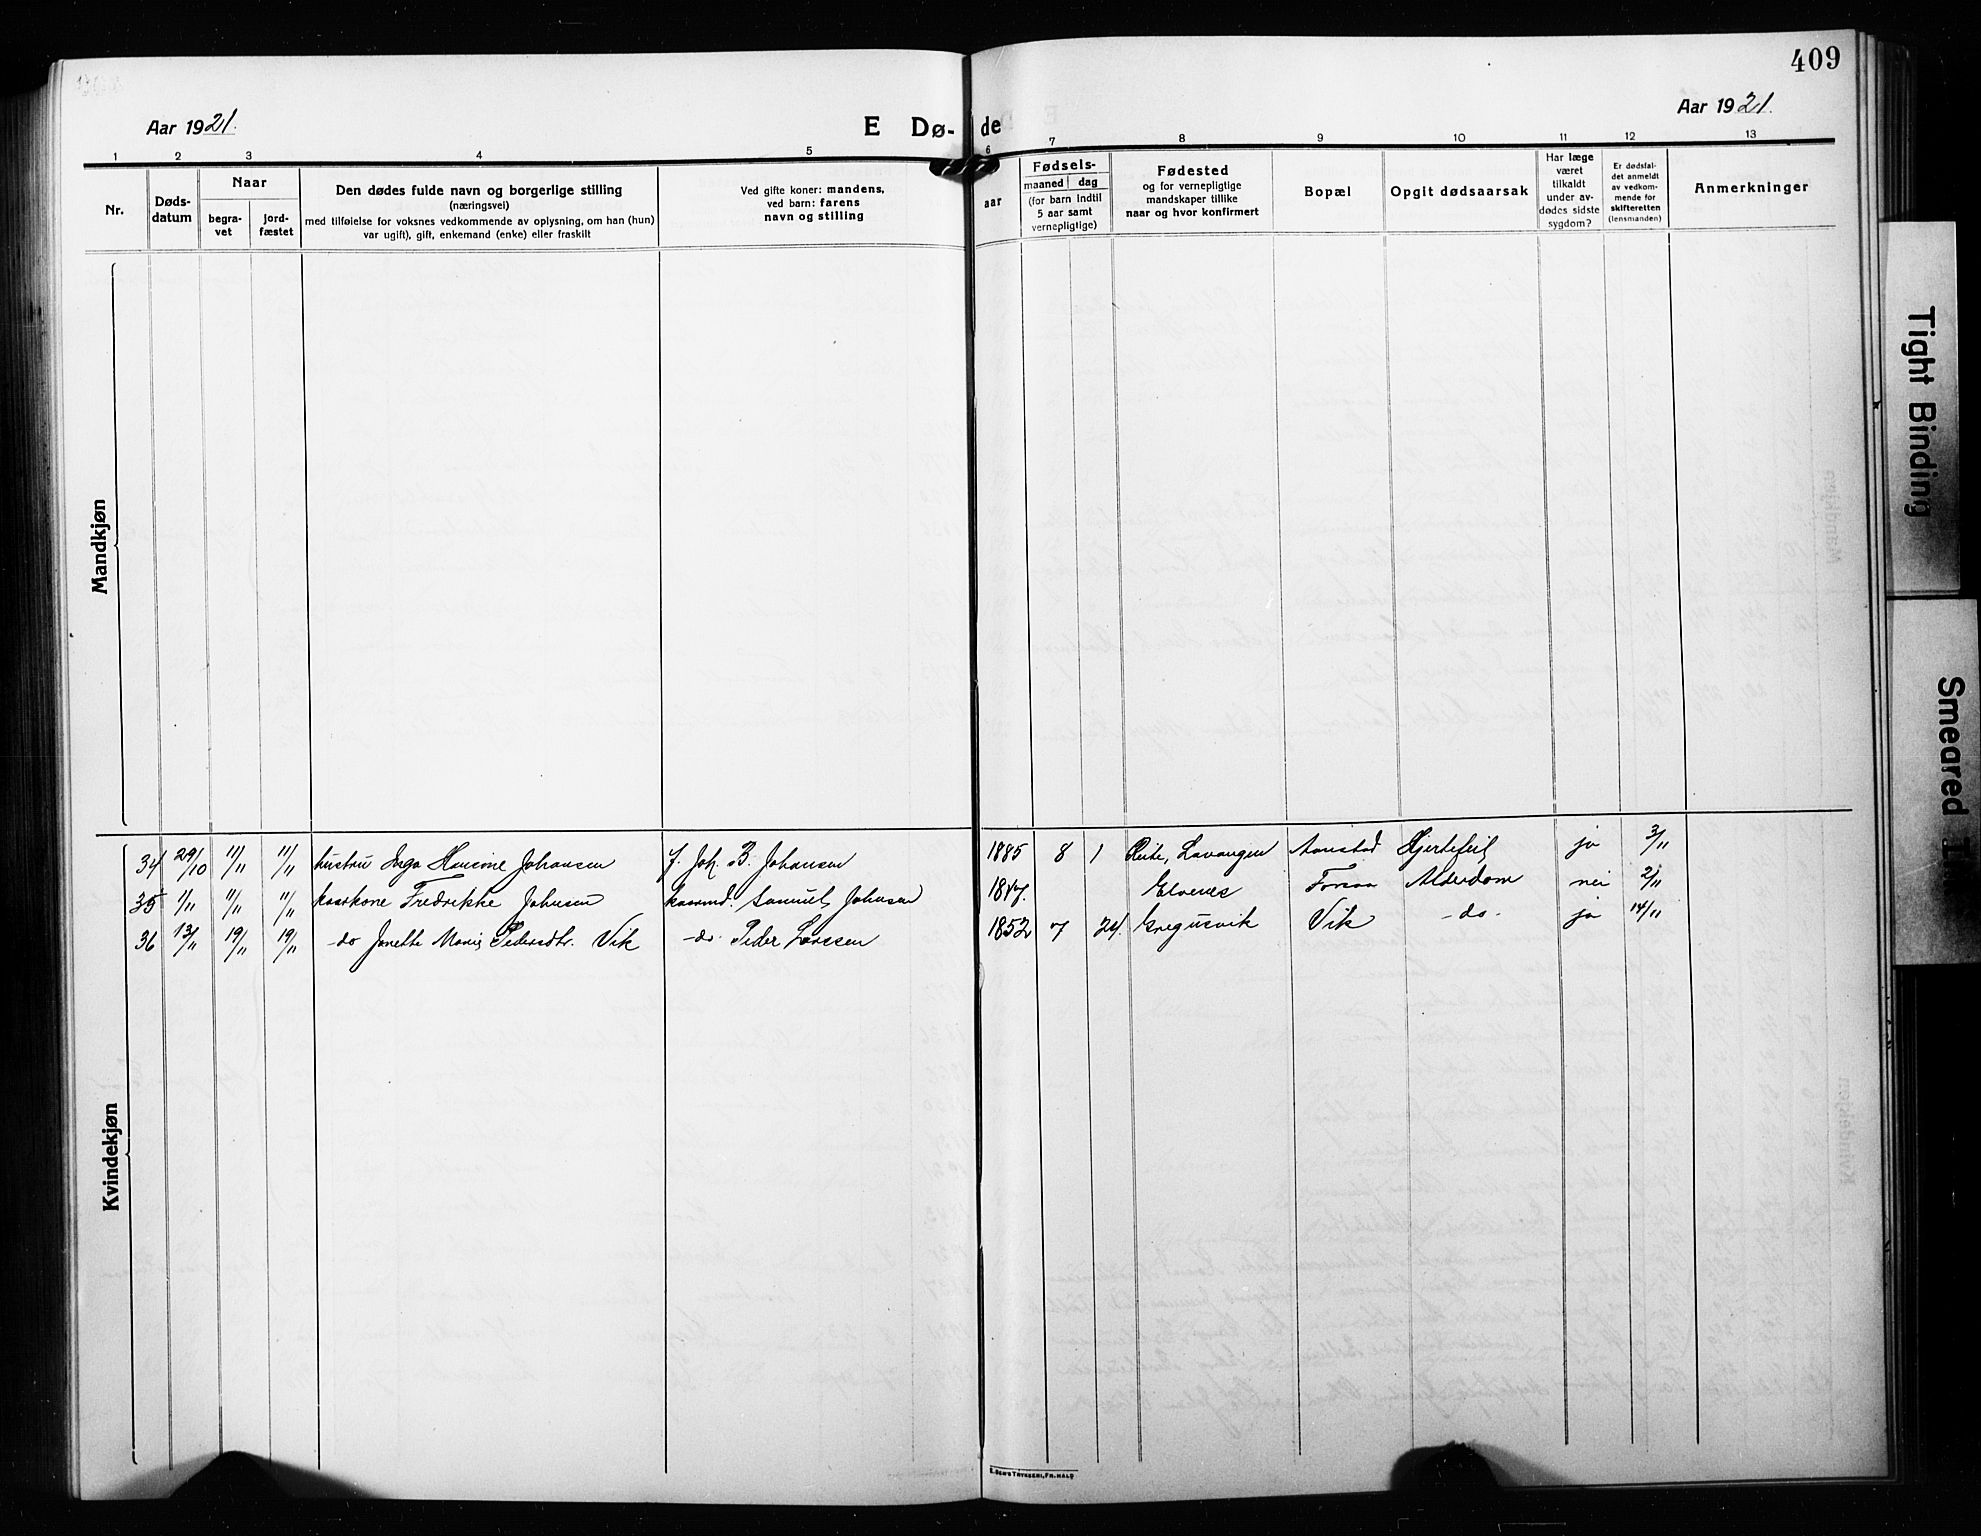 409
Aar 1921.
Aar 1921.
E Dø-de
1 2 3 4 5 6 7 8 9 10 11 12 13
Nr.
Døds-
datum
Naar
begra-
vet
jord-
fæstet
Den dødes fulde navn og borgerlige stilling
(næringsvei)
med tilføielse for voksnes vedkommende av oplysning, om han (hun)
var ugift), gift, enkemand (enke) eller fraskilt
Ved gifte koner: mandens,
ved barn: farens
navn og stilling
aar
Fødsels-
maaned dag
(for barn indtil
5 aar samt
vernepligtige)
Fødested
og for vernepligtige
mandskaper tillike
naar og hvor konfirmert
Bopæl
Opgit dødsaarsak
Har læge
været
tilkaldt
under av-
dødes sidste
sygdom?
Er dødsfal-
det anmeldt
av vedkom-
mende for
skifteretten
(lensmanden)
Anmerkninger
Mandkjøn
Kvindekjøn
34 29/10 11/11 11/11 hustru Inga Johansen f. Joh. B. Johansen 1885 8 1 Lavangen Aanstad Hjertefeil ja 3/11
35 1/11 11/11 11/11 kaarkone Fredrikke Johnsen kaarmd. Samuel Johnsen Elvenes Forsaa Alderdom nei 2/11
36 13/11 19/11 19/11 -do- Janette Marie Pedersdtr. Vik -do- Peder Larssen 1852 7 24. Gregusvik Vik -do- ja 14/11
E. SEM'S TRYKKERI, FR.HALD
Tight Binding
Smeared